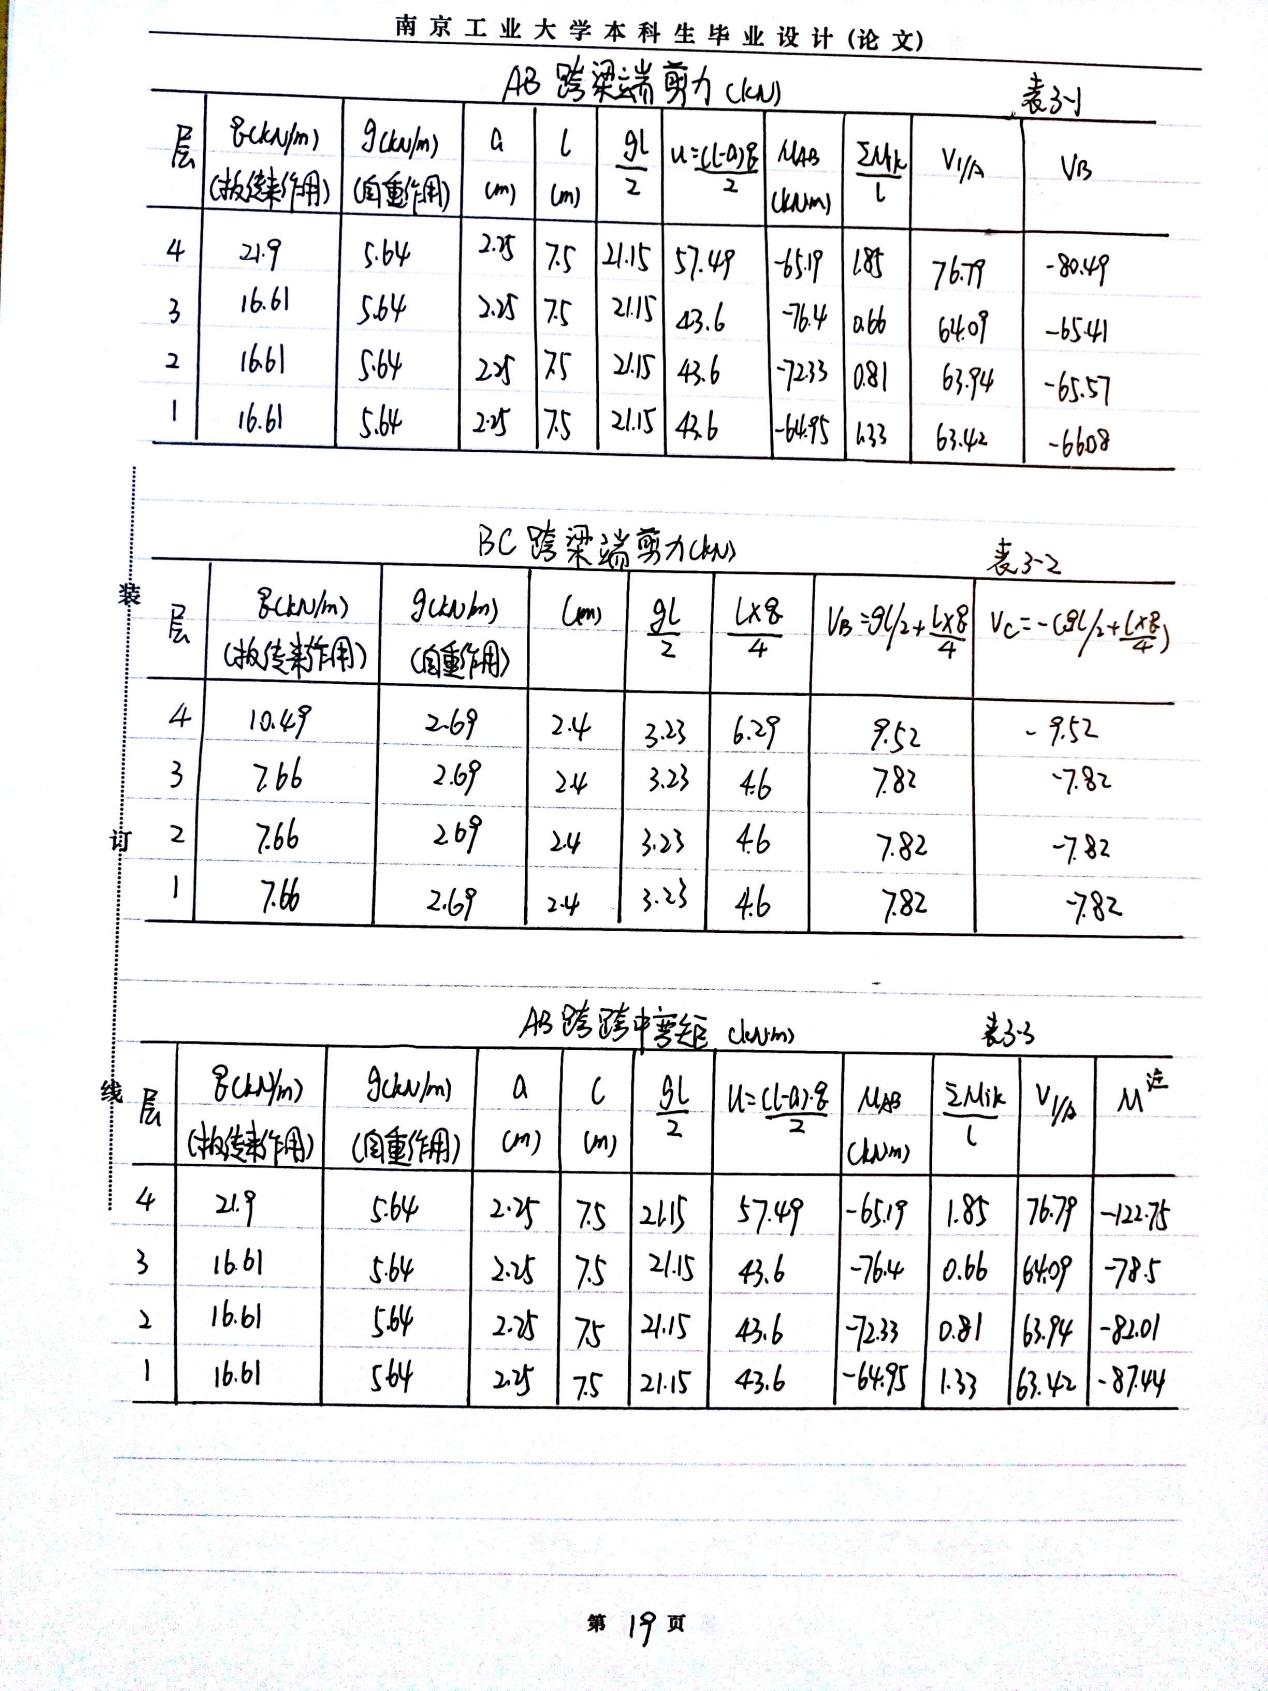 南京工业大学本科生毕业设计(论文)
AB跨梁端剪力(kN) 表3-1
层 q(kN/m)(板传来作用) g(kN/m)(自重作用) a(m) l(m) gl/2 u=(l-a)q/2 MAB(kN·m) ΣMik/l V1/A VB
4 21.9 5.64 2.25 7.5 21.15 57.49 -65.19 1.85 76.79 -80.49
3 16.61 5.64 2.25 7.5 21.15 43.6 -76.4 0.66 64.09 -65.41
2 16.61 5.64 2.25 7.5 21.15 43.6 -72.33 0.81 63.94 -65.57
1 16.61 5.64 2.25 7.5 21.15 43.6 -64.95 1.33 63.42 -66.08
BC跨梁端剪力(kN) 表3-2
层 q(kN/m)(板传来作用) g(kN/m)(自重作用) l(m) gl/2 l×q/4 VB=gl/2+l×q/4 VC=-(gl/2+l×q/4)
4 10.49 2.69 2.4 3.23 6.29 9.52 -9.52
3 7.66 2.69 2.4 3.23 4.6 7.82 -7.82
2 7.66 2.69 2.4 3.23 4.6 7.82 -7.82
1 7.66 2.69 2.4 3.23 4.6 7.82 -7.82
AB跨跨中弯矩(kN·m) 表3-3
层 q(kN/m)(板传来作用) g(kN/m)(自重作用) a(m) l(m) gl/2 u=(l-a)·q/2 MAB(kN·m) ΣMik/l V1/A M注
4 21.9 5.64 2.25 7.5 21.15 57.49 -65.19 1.85 76.79 -122.75
3 16.61 5.64 2.25 7.5 21.15 43.6 -76.4 0.66 64.09 -78.5
2 16.61 5.64 2.25 7.5 21.15 43.6 -72.33 0.81 63.94 -82.01
1 16.61 5.64 2.25 7.5 21.15 43.6 -64.95 1.33 63.42 -87.44
装
订
线
第19页